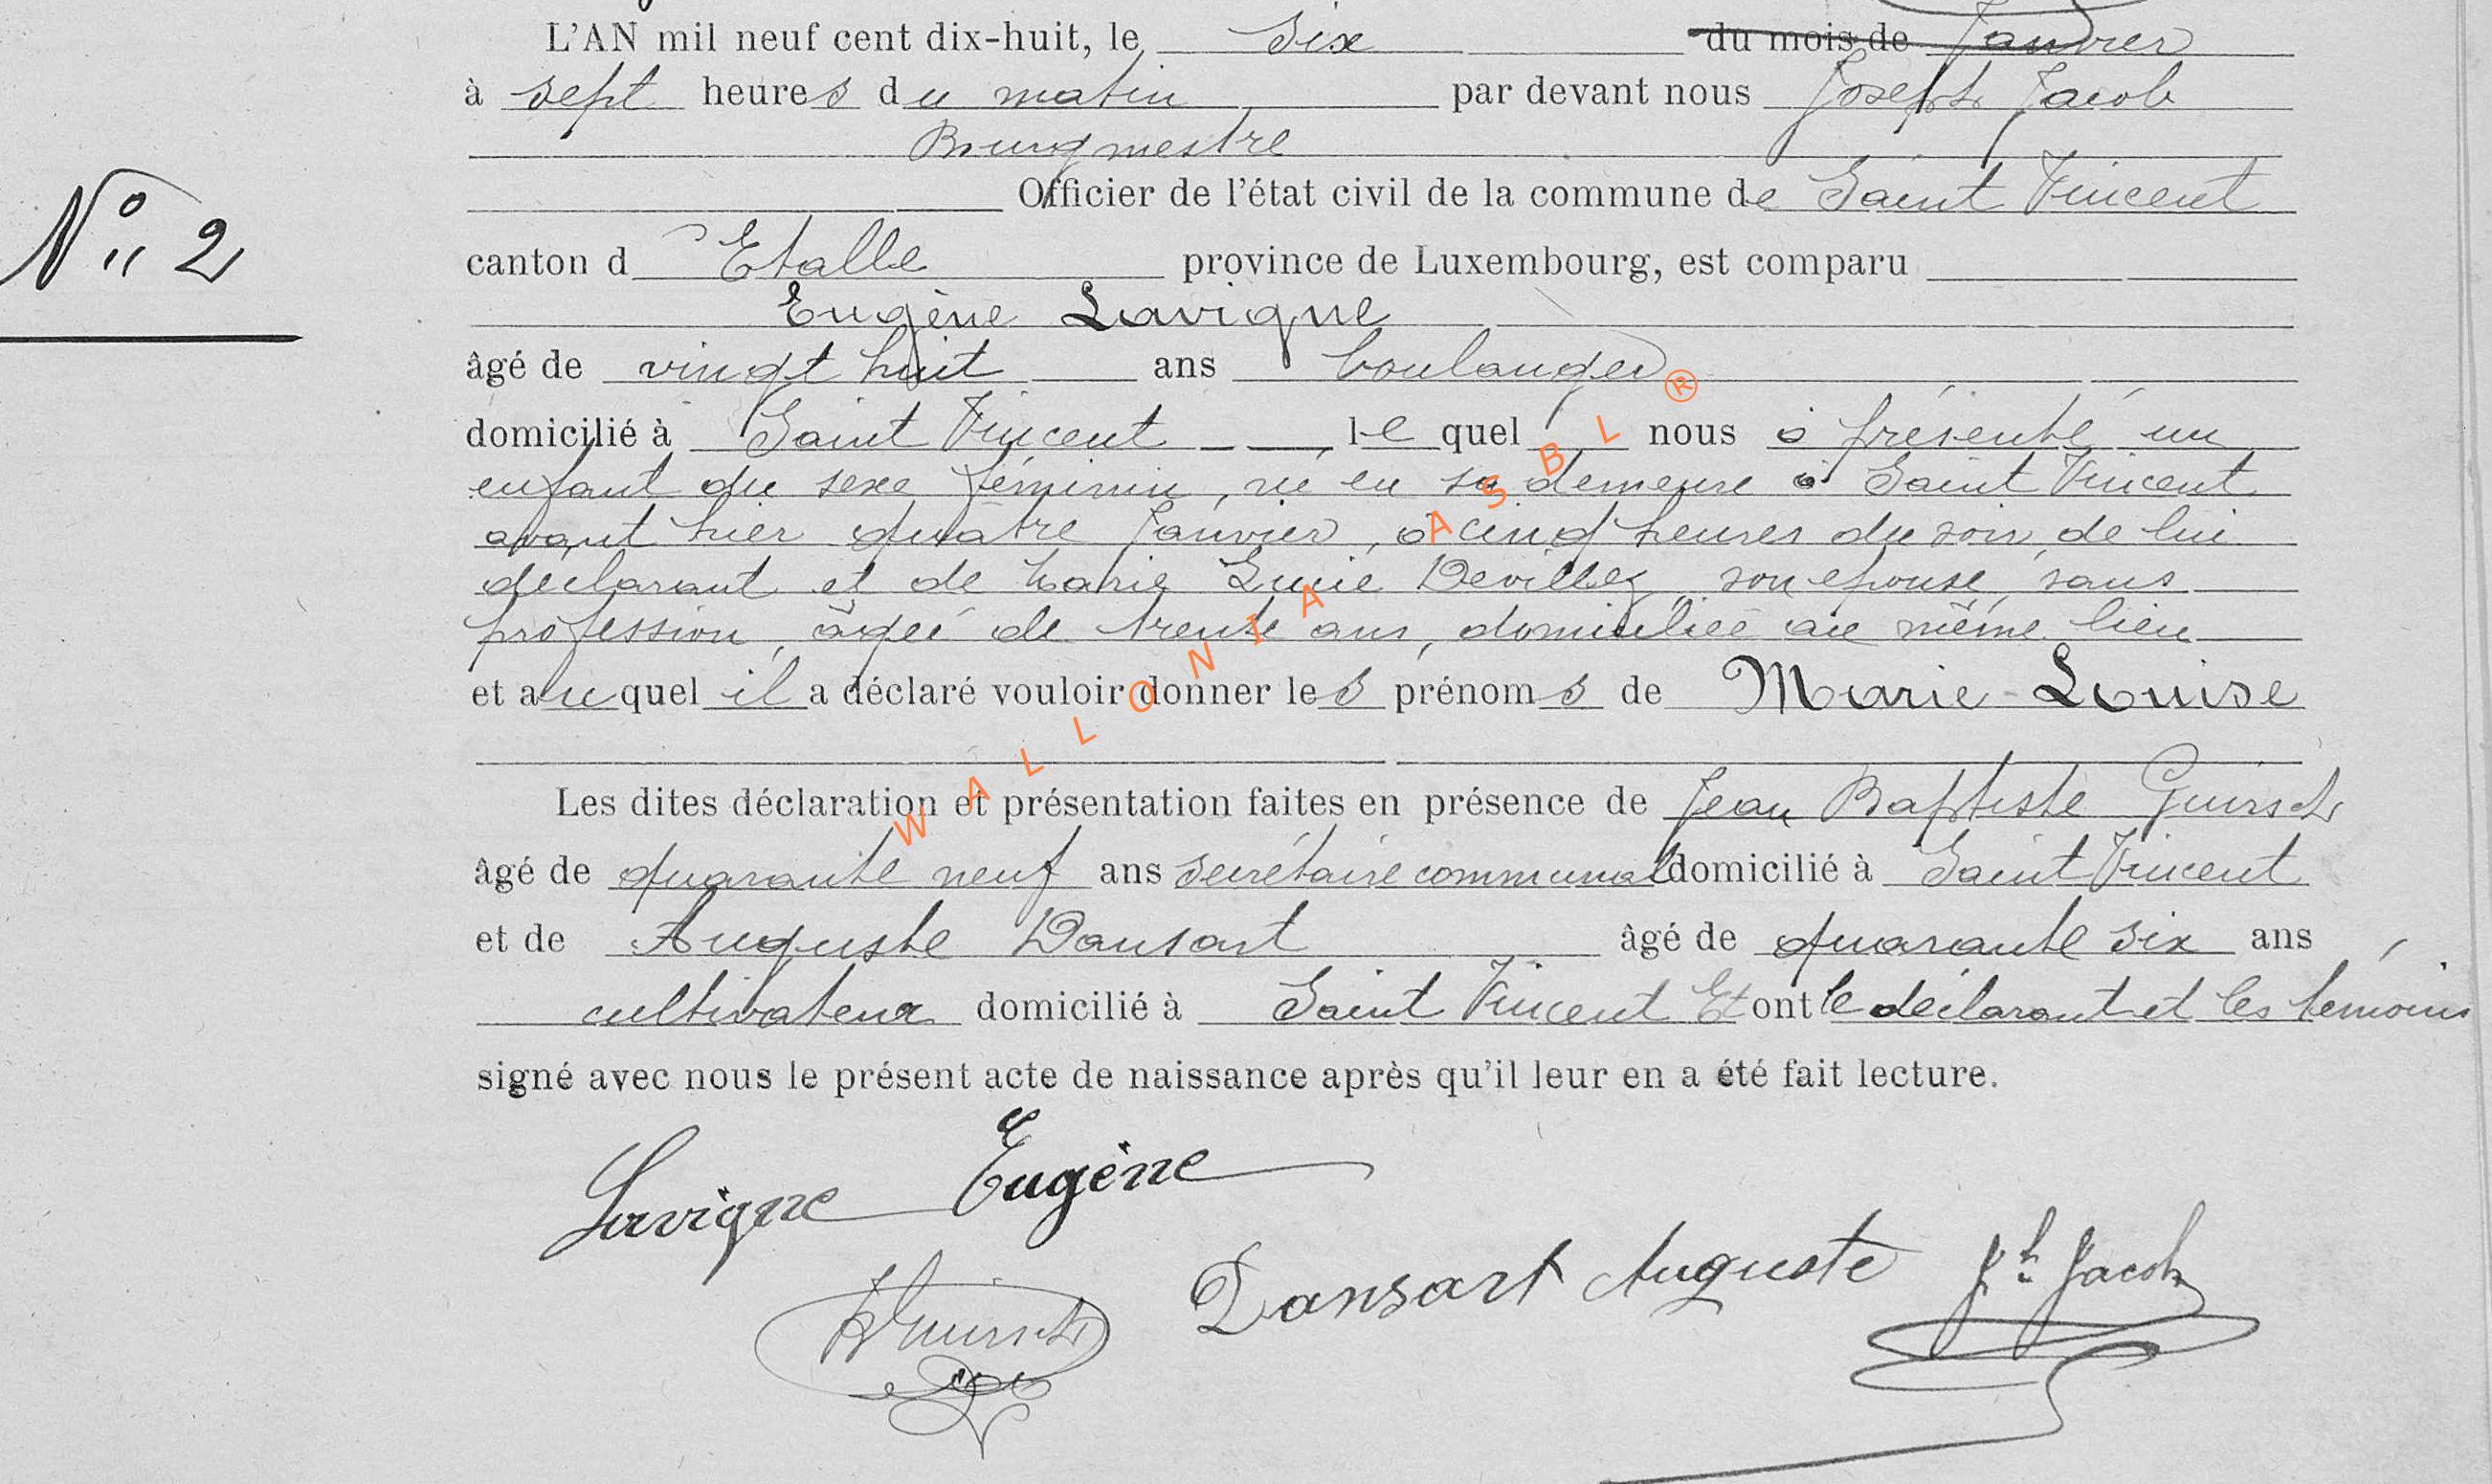 L'AN mil neuf cent dix-huit, le six du mois de Janvier
à sept heures du matin par devant nous Joseph Jacob
Bourgmestre
Officier de l'état civil de la commune de Saint Vincent
N° 2
canton d'Etalle province de Luxembourg, est comparu
Eugène Lavigne
âgé de vingt huit ans boulanger
domicilié à Saint Vincent lequel nous a présenté un
enfant du sexe féminin, né en sa demeure à Saint Vincent
avant hier quatre Janvier, à cinq heures du soir, de lui
déclarant et de Marie Lucie Devillez son epouse, sans
profession, âgée de trente ans, domiciliée au même lieu
et auquel il a déclaré vouloir donner les prénoms de Marie-Louise
Les dites déclaration et présentation faites en présence de Jean Baptiste Guirsch
âgé de quarante neuf ans secrétaire communal domicilié à Saint Vincent
et de Auguste Dansart âgé de quarante six ans
cultivateur domicilié à Saint Vincent Et ont le déclarant et les témoins
signé avec nous le présent acte de naissance après qu'il leur en a été fait lecture.
Lavigne Eugène
Guirsch Dansart Auguste Jh Jacob
WALLONIA ASBL ®